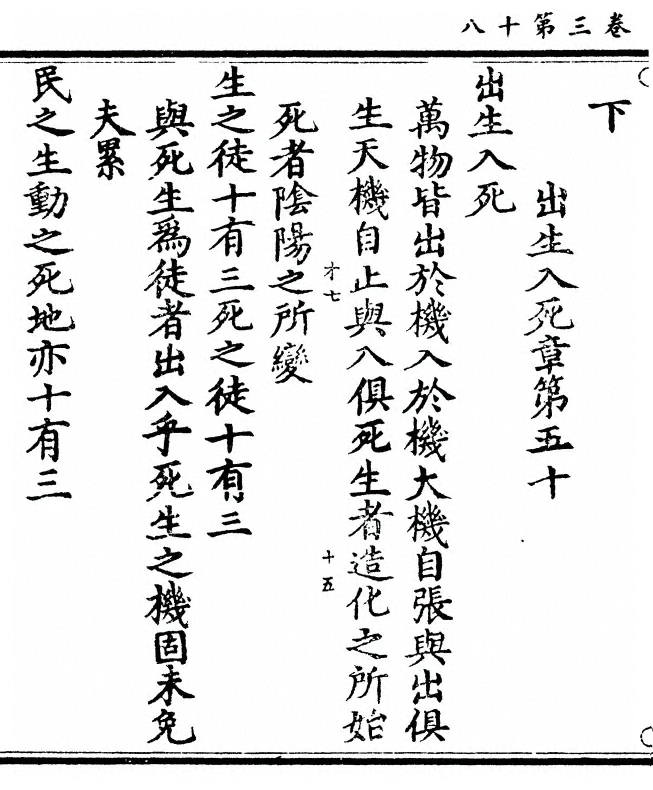 卷三第十八
下
出生入死章第五十
出生入死
萬物皆出於機入於機大機自張與出俱
生天機自止與入俱死生者造化之所始
才七
十五
死者陰陽之所變
生之徒十有三死之徒十有三
與死生爲徒者出入乎死生之機固未免
夫累
民之生動之死地亦十有三